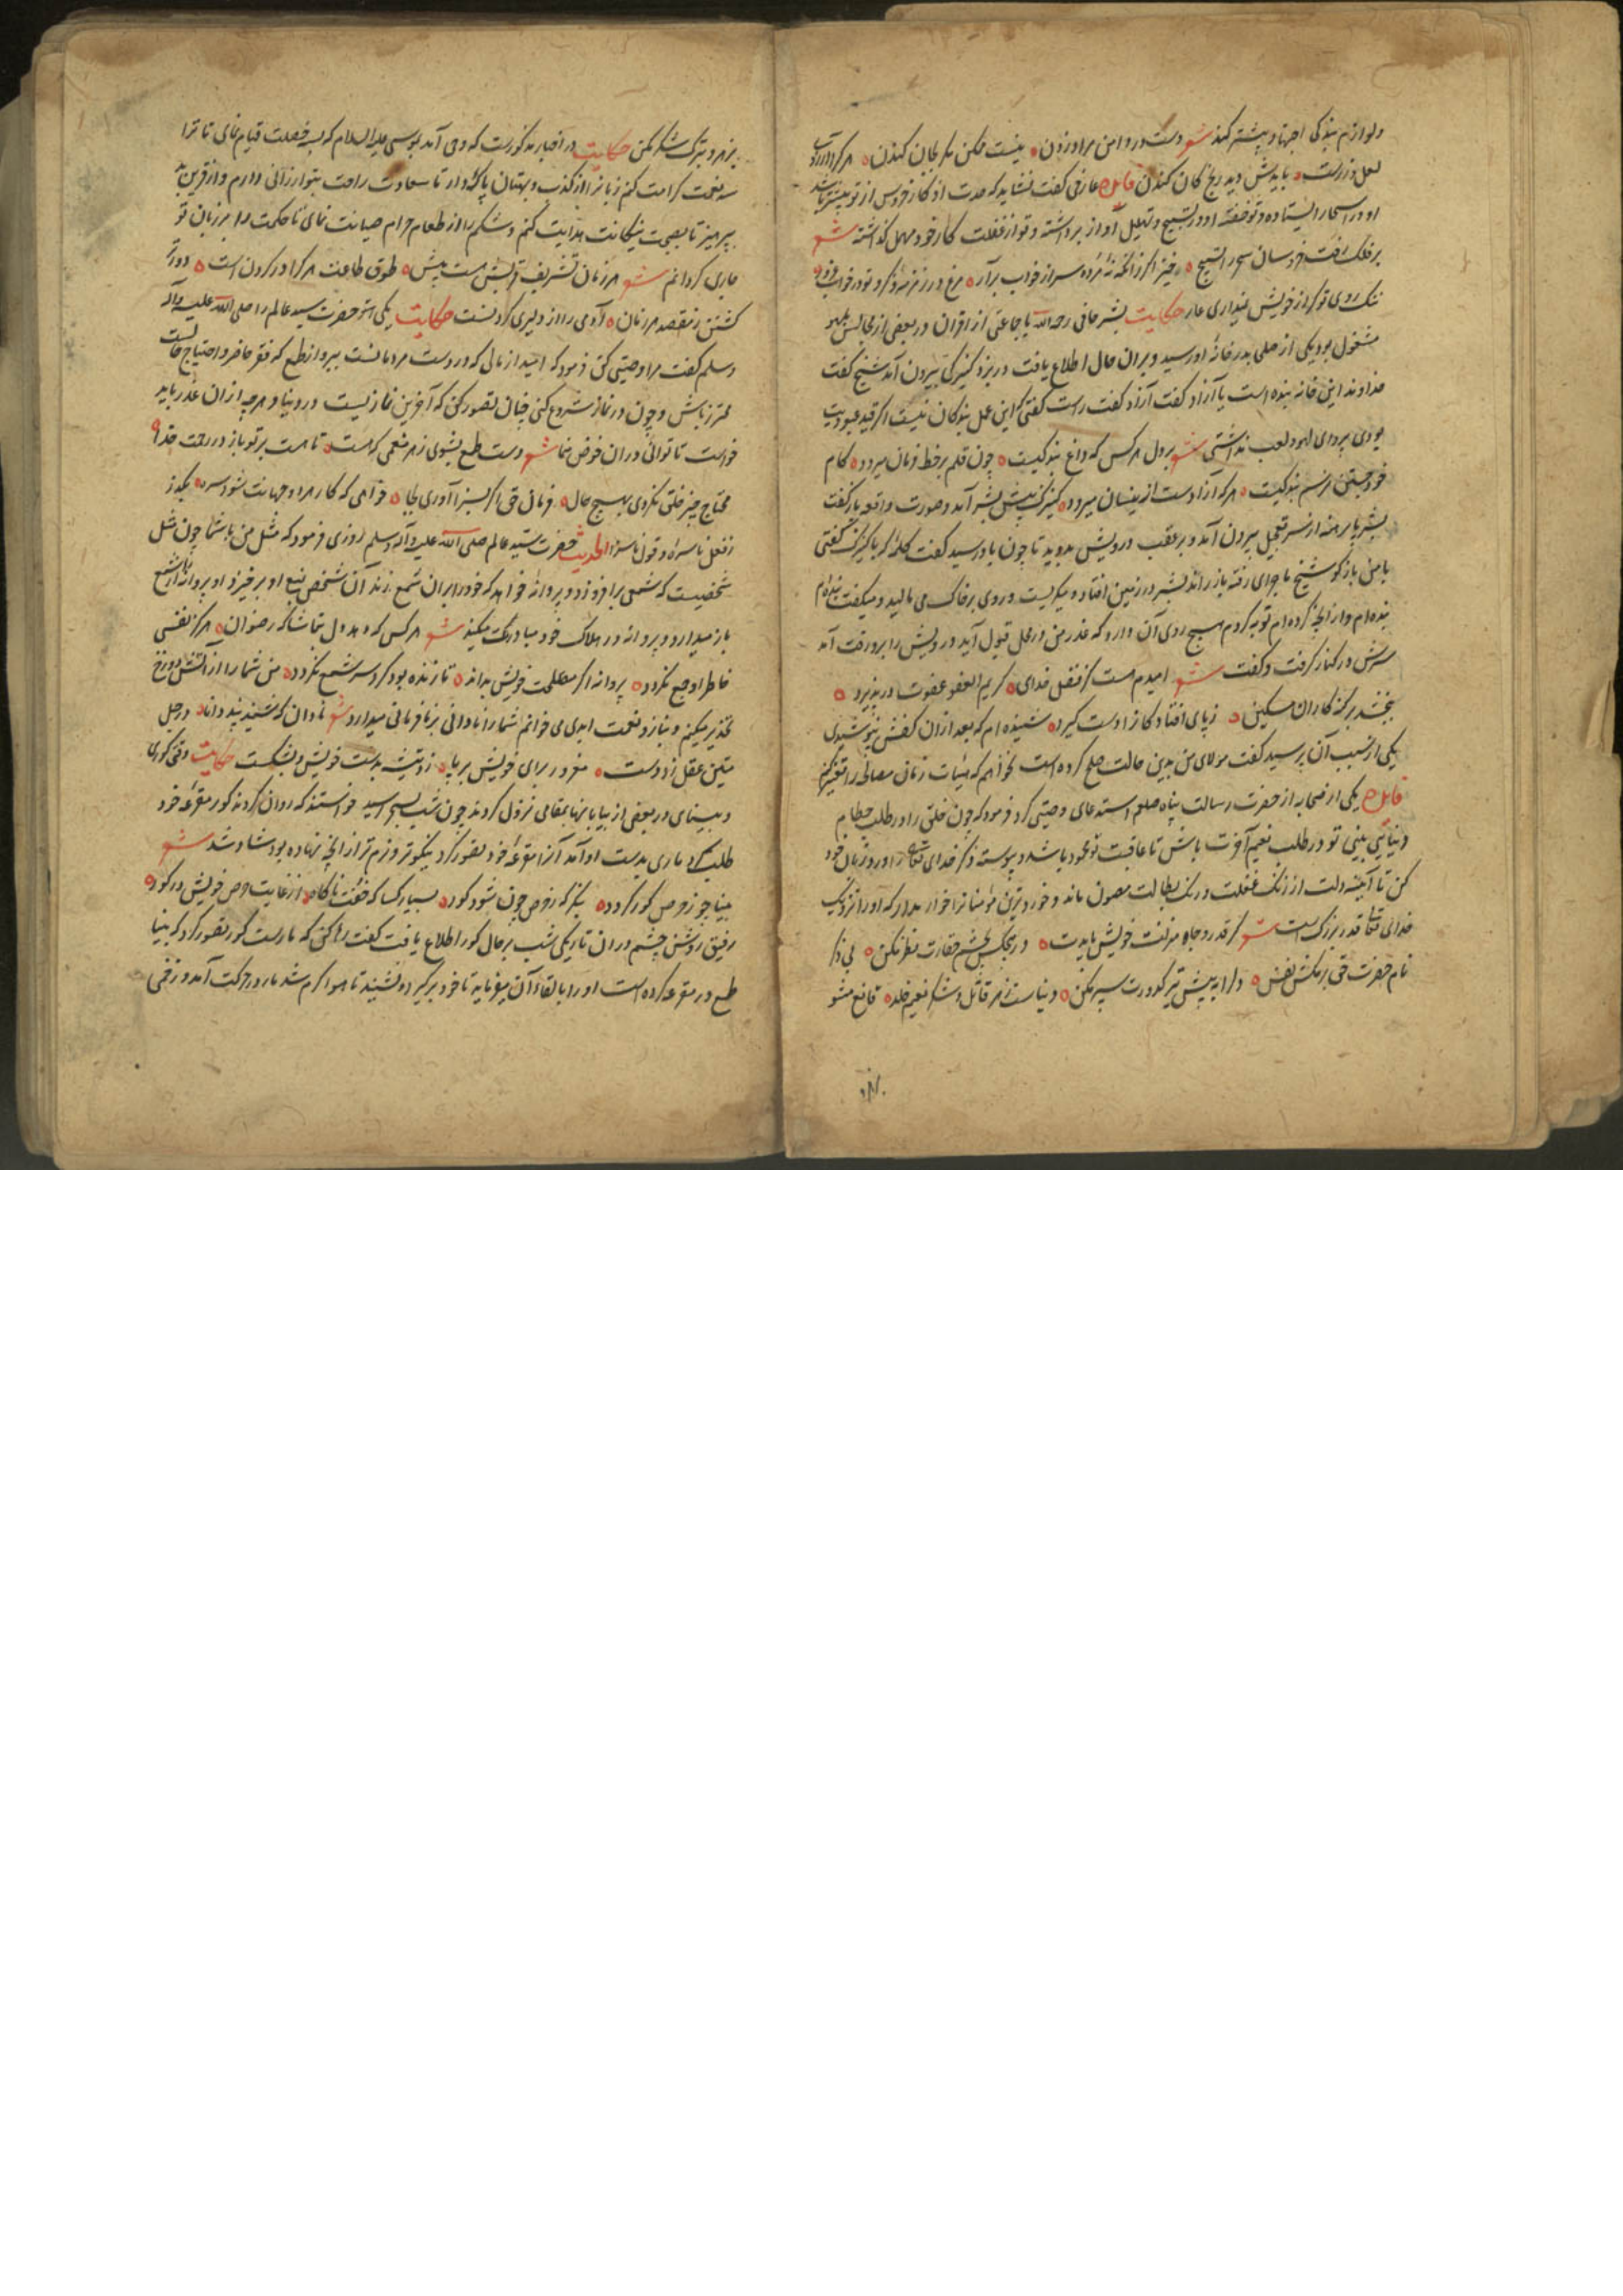 ولوازم بندگی اجتهاد بیشتر کند شعر دست در دامن مراد زدن نیست ممکن مگر بجان کندن هر کرا
لعل و زر است بایدش دید رنج کان کندن عارفی گفت نشاید که
او در اسحار ایستاده و تو خفته او در تسبیح و تهلیل آواز برداشته و تو از غفلت کار خود مهمل گذاشته شعر
بر فلک رفت خروسان سحر را تسبیح خیز اگر زانکه نه مرده سر از خواب برآر مرغ در زمزمه ذکر و تو در خواب غرور
ننگ روی تو کز خویش نمیداری عار حکایت بشر حافی رحمه الله با جماعتی از اقران در بعضی از مجالس بلهو
مشغول بود یکی از صلحا بدر خانه او رسید و بر آن حال اطلاع یافت در بزد کنیزکی بیرون آمد شیخ گفت
خداوند این خانه بنده است یا آزاد گفت آزاد گفت راست گفتی که این عمل بندگان نیست اگر قید عبودیت
بودی پروای لهو و لعب نداشتی شعر بر دل هر کس که داغ بندگیست چون قلم بر خط فرمان میرود کام
خود جستن نه رسم بندگیست هر که آزاد است از ینسان میرود کنیزک پیش بشر آمد و صورت واقعه باز گفت
بشر پا برهنه از سر تعجیل بیرون آمد و بر عقب درویش بدوید تا چون باو رسید گفت کلمه که با کنیزک گفتی
با من باز گو شیخ ماجرای رفته باز راند بشر در زمین افتاد و میگریست و روی بر خاک می مالید و میگفت بنده ام
بنده ام و از آنچه کرده ام توبه کردم هیچ روی آن دارد که عذر من در محل قبول آید درویش را برو رقت آمد
سرش در کنار گرفت و گفت شعر امیدم هست کز فضل خدای کریم العفو عفوت در پذیرد
ببخشد بر گنه کاران مسکین ز پای افتادگانرا دست گیرد شنیده ام که بعد از آن کفش نپوشیدی
یکی از سبب آن پرسید گفت مولای من بدین حالت صلح کرده است نخواهم که هیئات زمان مصالحه را تغییر کنم
یکی از صحابه از حضرت رسالت پناه صلعم استدعای وصیتی کرد فرمود که چون خلق را در طلب حطام
دنیا بینی تو در طلب نعیم آخرت باش تا عاقبت تو محمود باشد و پیوسته ذکر خدای تعالی را ورد زبان خود
کن تا آینه دلت از زنگ غفلت و رنگ بطالت مصون ماند و خورد ترین مؤمنانرا خوار مدار که او را نزدیک
خدای تعالی قدر بزرگ است شعر گر قدر و جاه و منزلت خویش بایدت در هیچکس بچشم حقارت نظر مکن بی ذکر
نام حضرت حق بر مکش نفس دل را به پیش تیر کدورت سپر مکن دنیاست زهر قاتل و شکر نعیم خلد قانع مشو
بزهر و بترک شکر مکن حکایت در اخبار مذکور است که وحی آمد بموسی علیه السلام که بسه خصلت قیام نمای تا ترا
سه نعمت کرامت کنم زبانرا از کذب و بهتان پاک دار تا سعادت راحت بتو ارزانی دارم و از قرین بد
بپرهیز تا بصحبت نیکانت هدایت کنم و شکم را از طعام حرام صیانت نمای تا حکمت را بر زبان تو
جاری گردانم شعر هر زمان تشریف قربش هست بیش طوق طاعت هر کرا در گردن است
کشتن مقصد مردان آدمی را از دلیری کردنست حکایت یکی از حضرت سید عالم را صلی الله علیه و آله
وسلم گفت مرا وصیتی کن فرمود که امید از مالی که در دست مردمانست ببر و از طمع که فقر حاضر و احتیاج حالیست
محترز باش و چون در نماز شروع کنی چنان تصور کن که آخرین نماز تست در دنیا و هر چه از آن عذر باید
خواست تا توانی در آن خوض منما شعر دست طمع بشوی ز هر منعمی که هست تا هست بر تو باز در رحمت خدا
محتاج چیز خلق نگردی بهیچ حال فرمان حق اگر بسزا آوری بجا خواهی که کار هر دو جهانت شود بسر بگذر
ز فعل ناسره و قول ناسزا الحدیث حضرت سید عالم صلی الله علیه وآله وسلم روزی فرمود که مثل من باشما چون مثل
شخصیست که شمعی برافروزد و پروانه خواهد که خود را بر آن شمع زند آن شخص بمنع او برخیزد و پروانه را از شمع
باز میدارد و پروانه در هلاک خود مبادرت میکند شعر هر کس که دهد دل بتماشا که رضوان هرگز نفسی
خاطر او جمع نگردد پروانه اگر مصلحت خویش بداند تا زنده بود گرد سر شمع نگردد من شما را از آتش دوزخ
تحذیر میکنم و بناز و نعمت ابدی می خوانم شما را نادانی بر نافرمانی میدارد شعر نادان که شنید پند دانا در حبل
متین عقل زد دست مغرور برای خویش بر پا زد تیشه بدست خویش و بشکست حکایت وقتی کوری
و بینای در بعضی از بیابانها بمقامی نزول کردند چون شب بسحر رسید خواستند که روان گردند کور مقرعه خود
طلب کرد ماری بدست او آمد آنرا مقرعه خود تصور کرد نیکوتر و نرم تر از آنچه نهاده بود شاد شد شعر
بینا چو ز حرص کور گردد بنگر که ز حرص چون شود کور بسیار کسا که خفت ناگاه از غایت حرص خویش در گور
رفیق روشن چشم در آن تاریکی شب بر حال کور اطلاع یافت گفت رها کن که مار است کور تصور کرد که بینا
طمع در مقرعه کرده است او را بالقاء آن میفرماید تا خود برگیرد و نشنید تا هوا گرم شد مار در حرکت آمد و زخمی